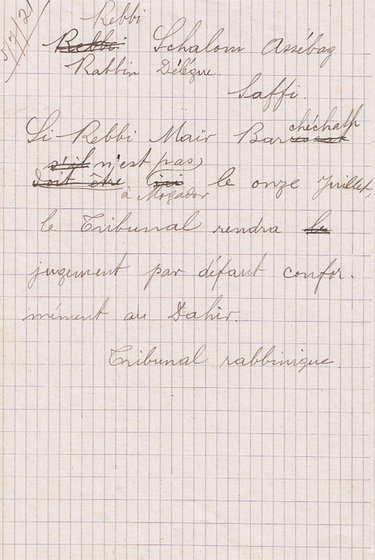 5/7/21
Rebbi
Rebbi Schalom Assébag
Rabbin Délégué.
Saffi.
Si Rebbi Maïr Barchéchath
s'il n'est pas
doit être ici le onze Juillet,
à Mogador
le Tribunal rendra le
jugement par défaut confor-
mément au Dahir.
Tribunal rabbinique.